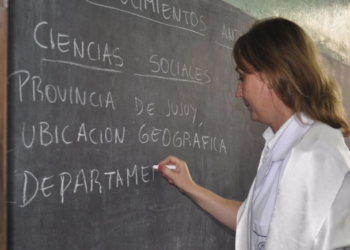 OCIMIENTOS ANT
CIENCIAS SOCIALES
PROVINCIA DE JUJUY,
UBICACIÓN GEOGRÁFICA
DEPARTAME